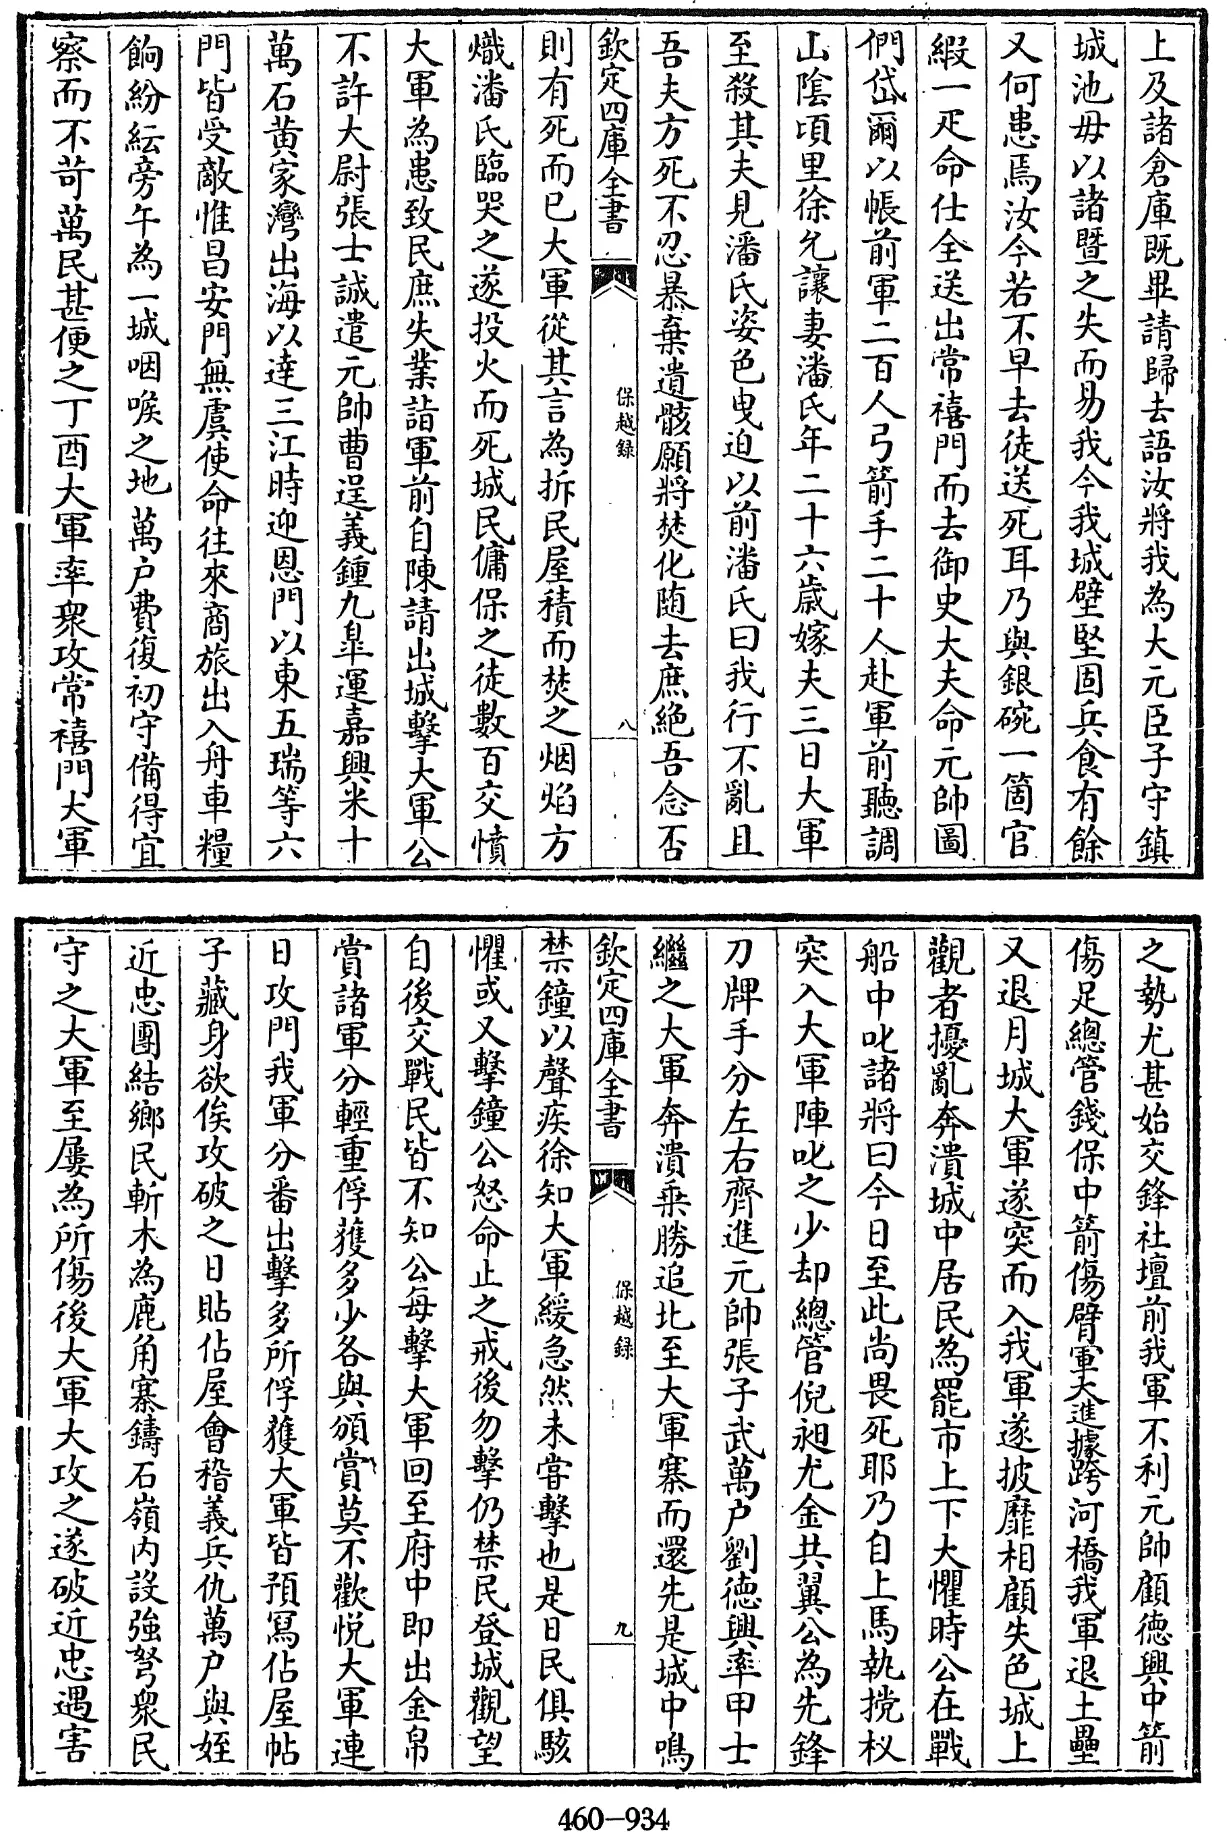 上及諸倉庫既畢請歸去語汝將我為大元臣子守鎮
城池毋以諸暨之失而易我今我城壁堅固兵食有餘
又何患焉汝今若不早去徒送死耳乃與銀碗一箇官
緞一疋命仕全送出常禧門而去御史大夫命元帥圖
們岱爾以帳前軍二百人弓箭手二十人赴軍前聽調
山陰項里徐允讓妻潘氏年二十六歲嫁夫三日大軍
至殺其夫見潘氏姿色曳迫以前潘氏曰我行不亂且
吾夫方死不忍暴棄遺骸願將焚化随去庶絶吾念否
欽定四庫全書
保越録
八
則有死而已大軍從其言為拆民屋積而焚之烟焰方
熾潘氏臨哭之遂投火而死城民傭保之徒數百交憤
大軍為患致民庶失業詣軍前自陳請出城擊大軍公
不許大尉張士誠遣元帥曹逞義鍾九臯運嘉興米十
萬石黄家灣出海以達三江時迎恩門以東五瑞等六
門皆受敵惟昌安門無虞使命往來商旅出入舟車糧
餉紛紜旁午為一城咽喉之地萬户費復初守備得宜
察而不苛萬民甚便之丁酉大軍率衆攻常禧門大軍
之勢尤甚始交鋒社壇前我軍不利元帥顧德興中箭
傷足總管錢保中箭傷臂軍大進據跨河橋我軍退土壘
又退月城大軍遂突而入我軍遂披靡相顧失色城上
觀者擾亂奔潰城中居民為罷市上下大懼時公在戰
船中叱諸將曰今日至此尚畏死耶乃自上馬執攩杈
突入大軍陣叱之少却總管倪昶尤金共翼公為先鋒
刀牌手分左右齊進元帥張子武萬户劉德興率甲士
繼之大軍奔潰乗勝追北至大軍寨而還先是城中鳴
欽定四庫全書
保越録
九
禁鐘以聲疾徐知大軍緩急然未嘗擊也是日民俱駭
懼或又擊鐘公怒命止之戒後勿擊仍禁民登城觀望
自後交戰民皆不知公每擊大軍回至府中即出金帛
賞諸軍分輕重俘獲多少各與頒賞莫不歡悦大軍連
日攻門我軍分番出擊多所俘獲大軍皆預寫佔屋帖
子藏身欲俟攻破之日貼佔屋會稽義兵仇萬户與姪
近忠團結鄉民斬木為鹿角寨鑄石嶺内設強弩衆民
守之大軍至屢為所傷後大軍大攻之遂破近忠遇害
460-934